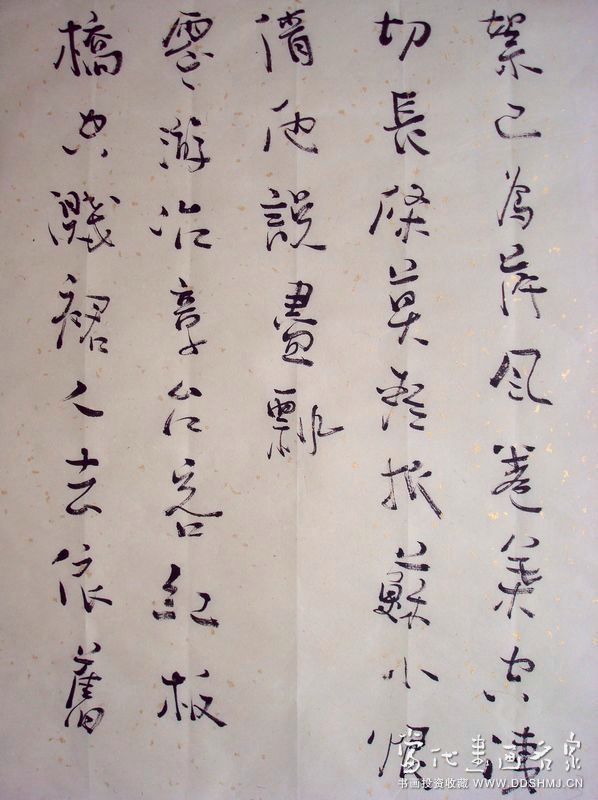 絮已為萍風卷葉空淒
切長條莫輕折蘇小恨
倩他說盡飄
零游冶章台客紅板
橋空濺裙人去依舊
当代書画名家
书画投资收藏 WWW.DDSHMJ.CN